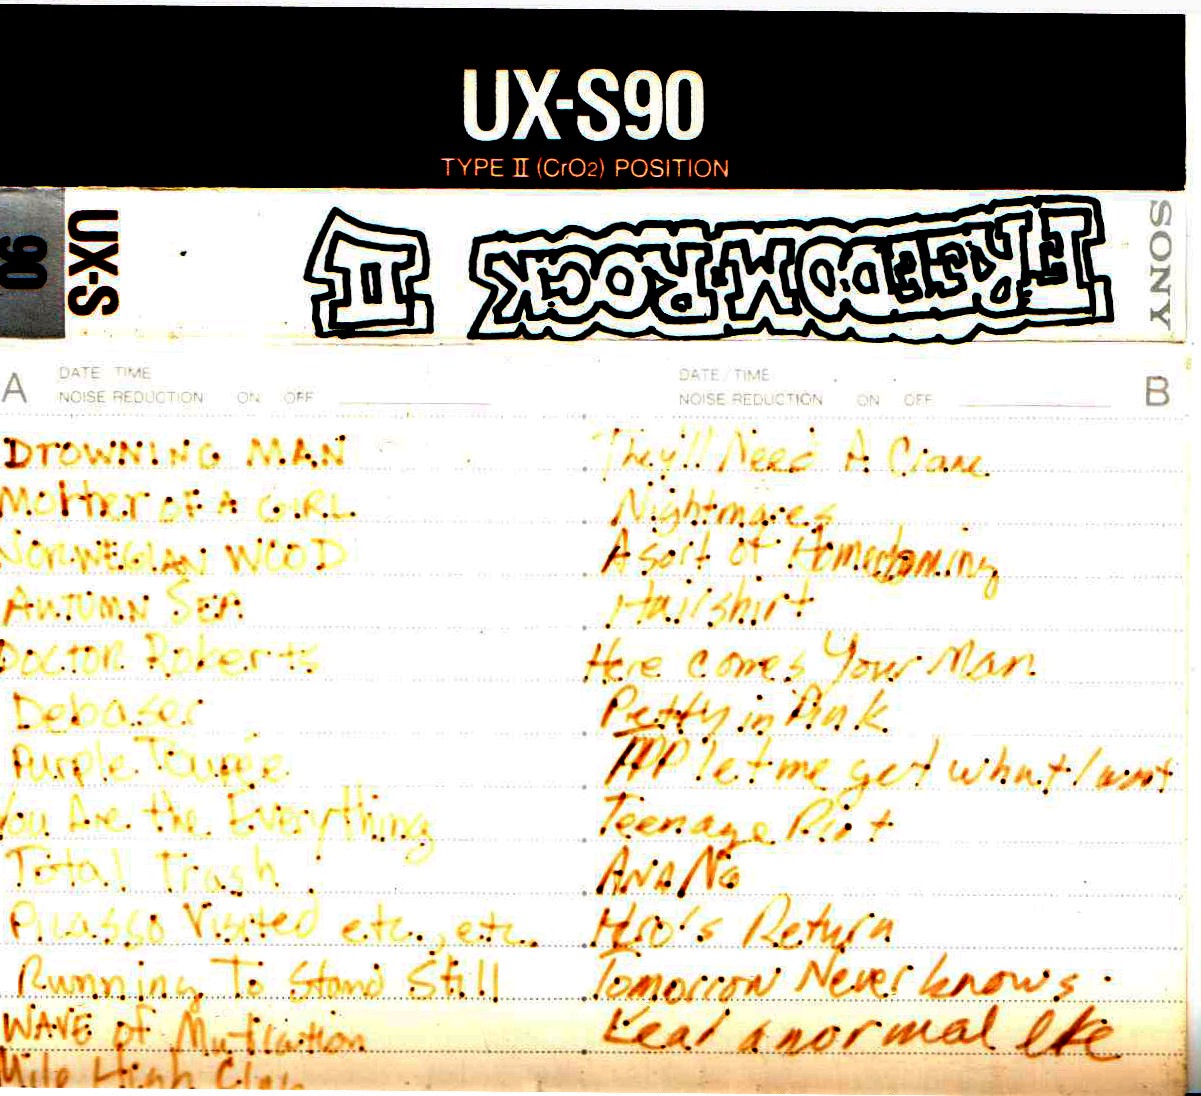 UX-S90
TYPE II (CrO2) POSITION
90
UX-S
FREEDOM ROCK II
SONY
A
DATE/TIME
NOISE REDUCTION ON OFF
DROWNING MAN
Mother OF A GIRL
NORWEGIAN WOOD
AUTUMN SEA
DOCTOR Roberts
Debaser
Purple Toupée
You Are the Everything
Total Trash
Picasso Visited etc., etc.
Running To Stand Still
WAVE of Mutilation
Mile High Club
B
DATE/TIME
NOISE REDUCTION ON OFF
They'll Need A Crane
Nightmares
A sort of Homecoming
Hairshirt
Here comes Your Man
Pretty in Pink
PPP let me get what I want
Teenage Riot
ANA Ng
Hero's Return
Tomorrow Never knows
Lead a normal life